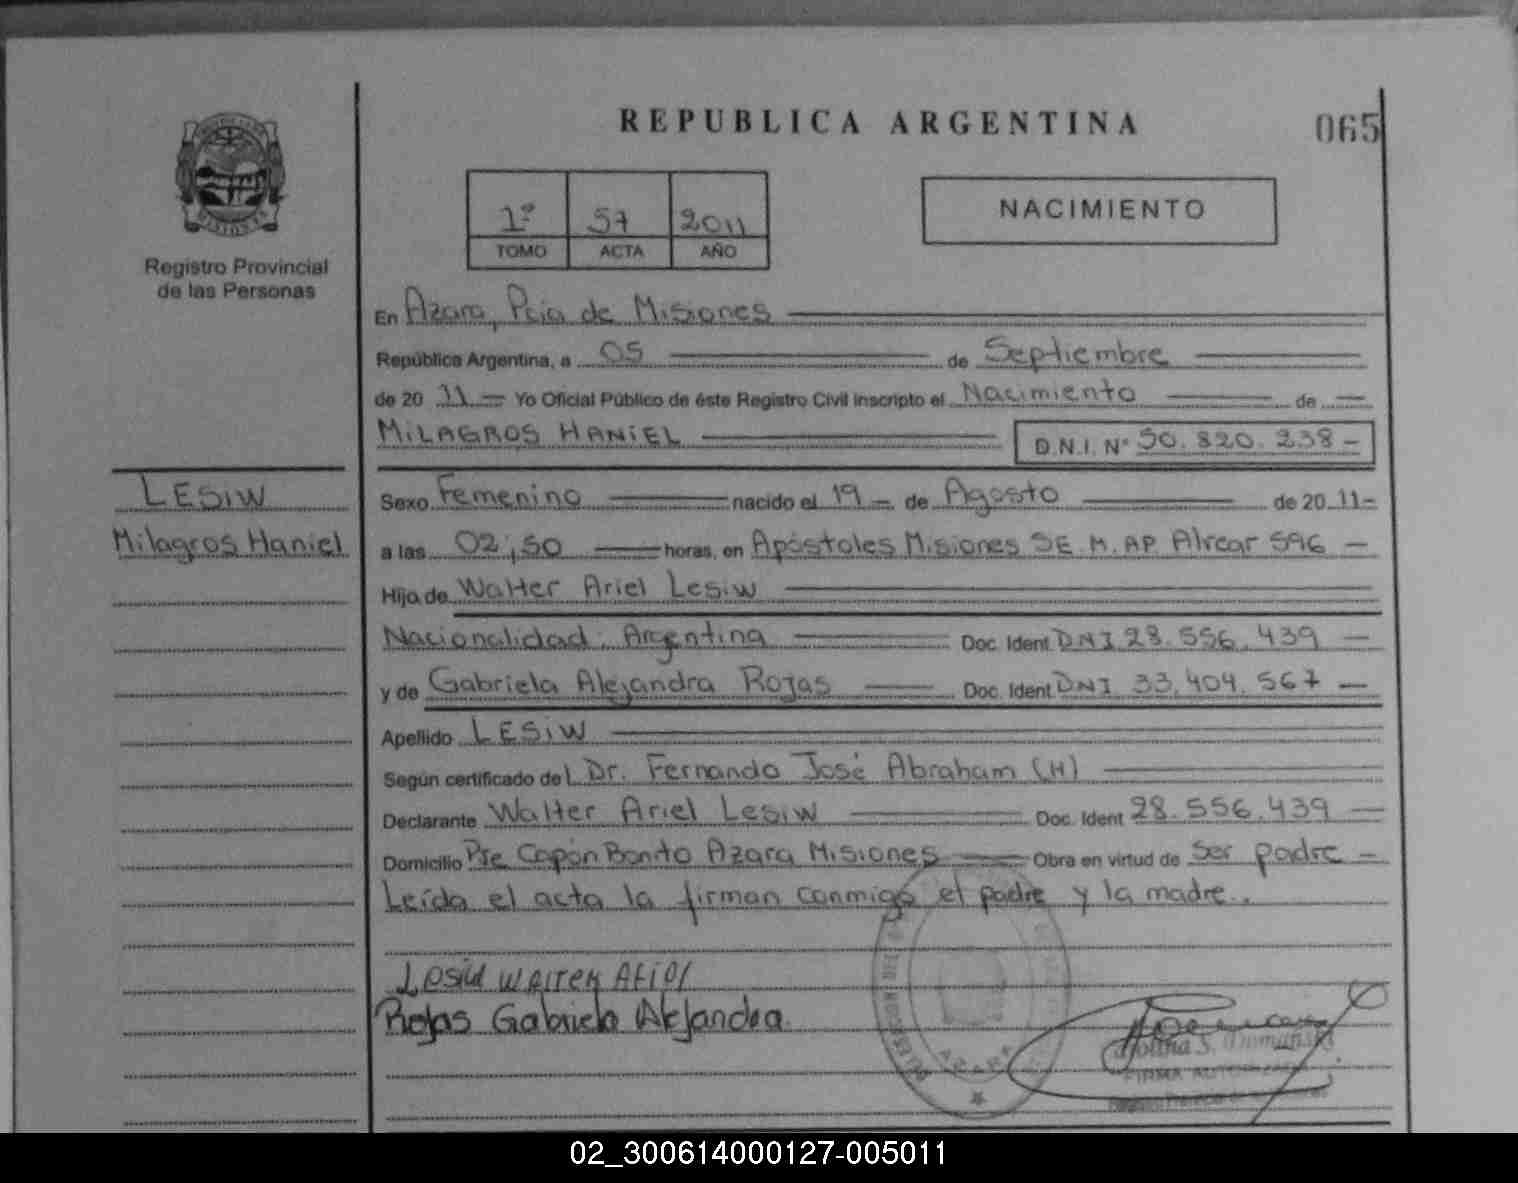 REPUBLICA ARGENTINA
065
1º 57 2011
TOMO ACTA AÑO
NACIMIENTO
MISIONES
Registro Provincial
de las Personas
En Azara, Pcia de Misiones
República Argentina, a 05 de Septiembre
de 20 11 Yo Oficial Público de éste Registro Civil inscripto el Nacimiento de
MILAGROS HANIEL D.N.I. Nº 50.820.238
LESIW
Milagros Haniel
Sexo Femenino nacido el 19 de Agosto de 20 11
a las 02,50 horas, en Apóstoles Misiones SE. M. AP. Alvear 596
Hija de Walter Ariel Lesiw
Nacionalidad: Argentina Doc. Ident DNI 28.556.439
y de Gabriela Alejandra Rojas Doc. Ident DNI 33.404.567
Apellido LESIW
Según certificado del Dr. Fernando José Abraham (H)
Declarante Walter Ariel Lesiw Doc. Ident 28.556.439
Domicilio Pje Capón Bonito Azara Misiones Obra en virtud de Ser padre
Leída el acta la firman conmigo el padre y la madre.
Lesiw Walter Ariel
Rojas Gabriela Alejandra
AZARA
S. Dumanski
FIRMA AUTORIZADA
02_300614000127-005011